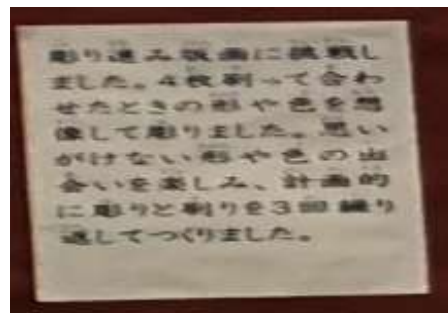 彫り進み版画に挑戦し
ました。4枚刷って合わ
せたときの形や色を想
像して彫りました。思い
がけない形や色の出
会いを楽しみ、計画的
に彫りと刷りを3回繰り
返してつくりました。